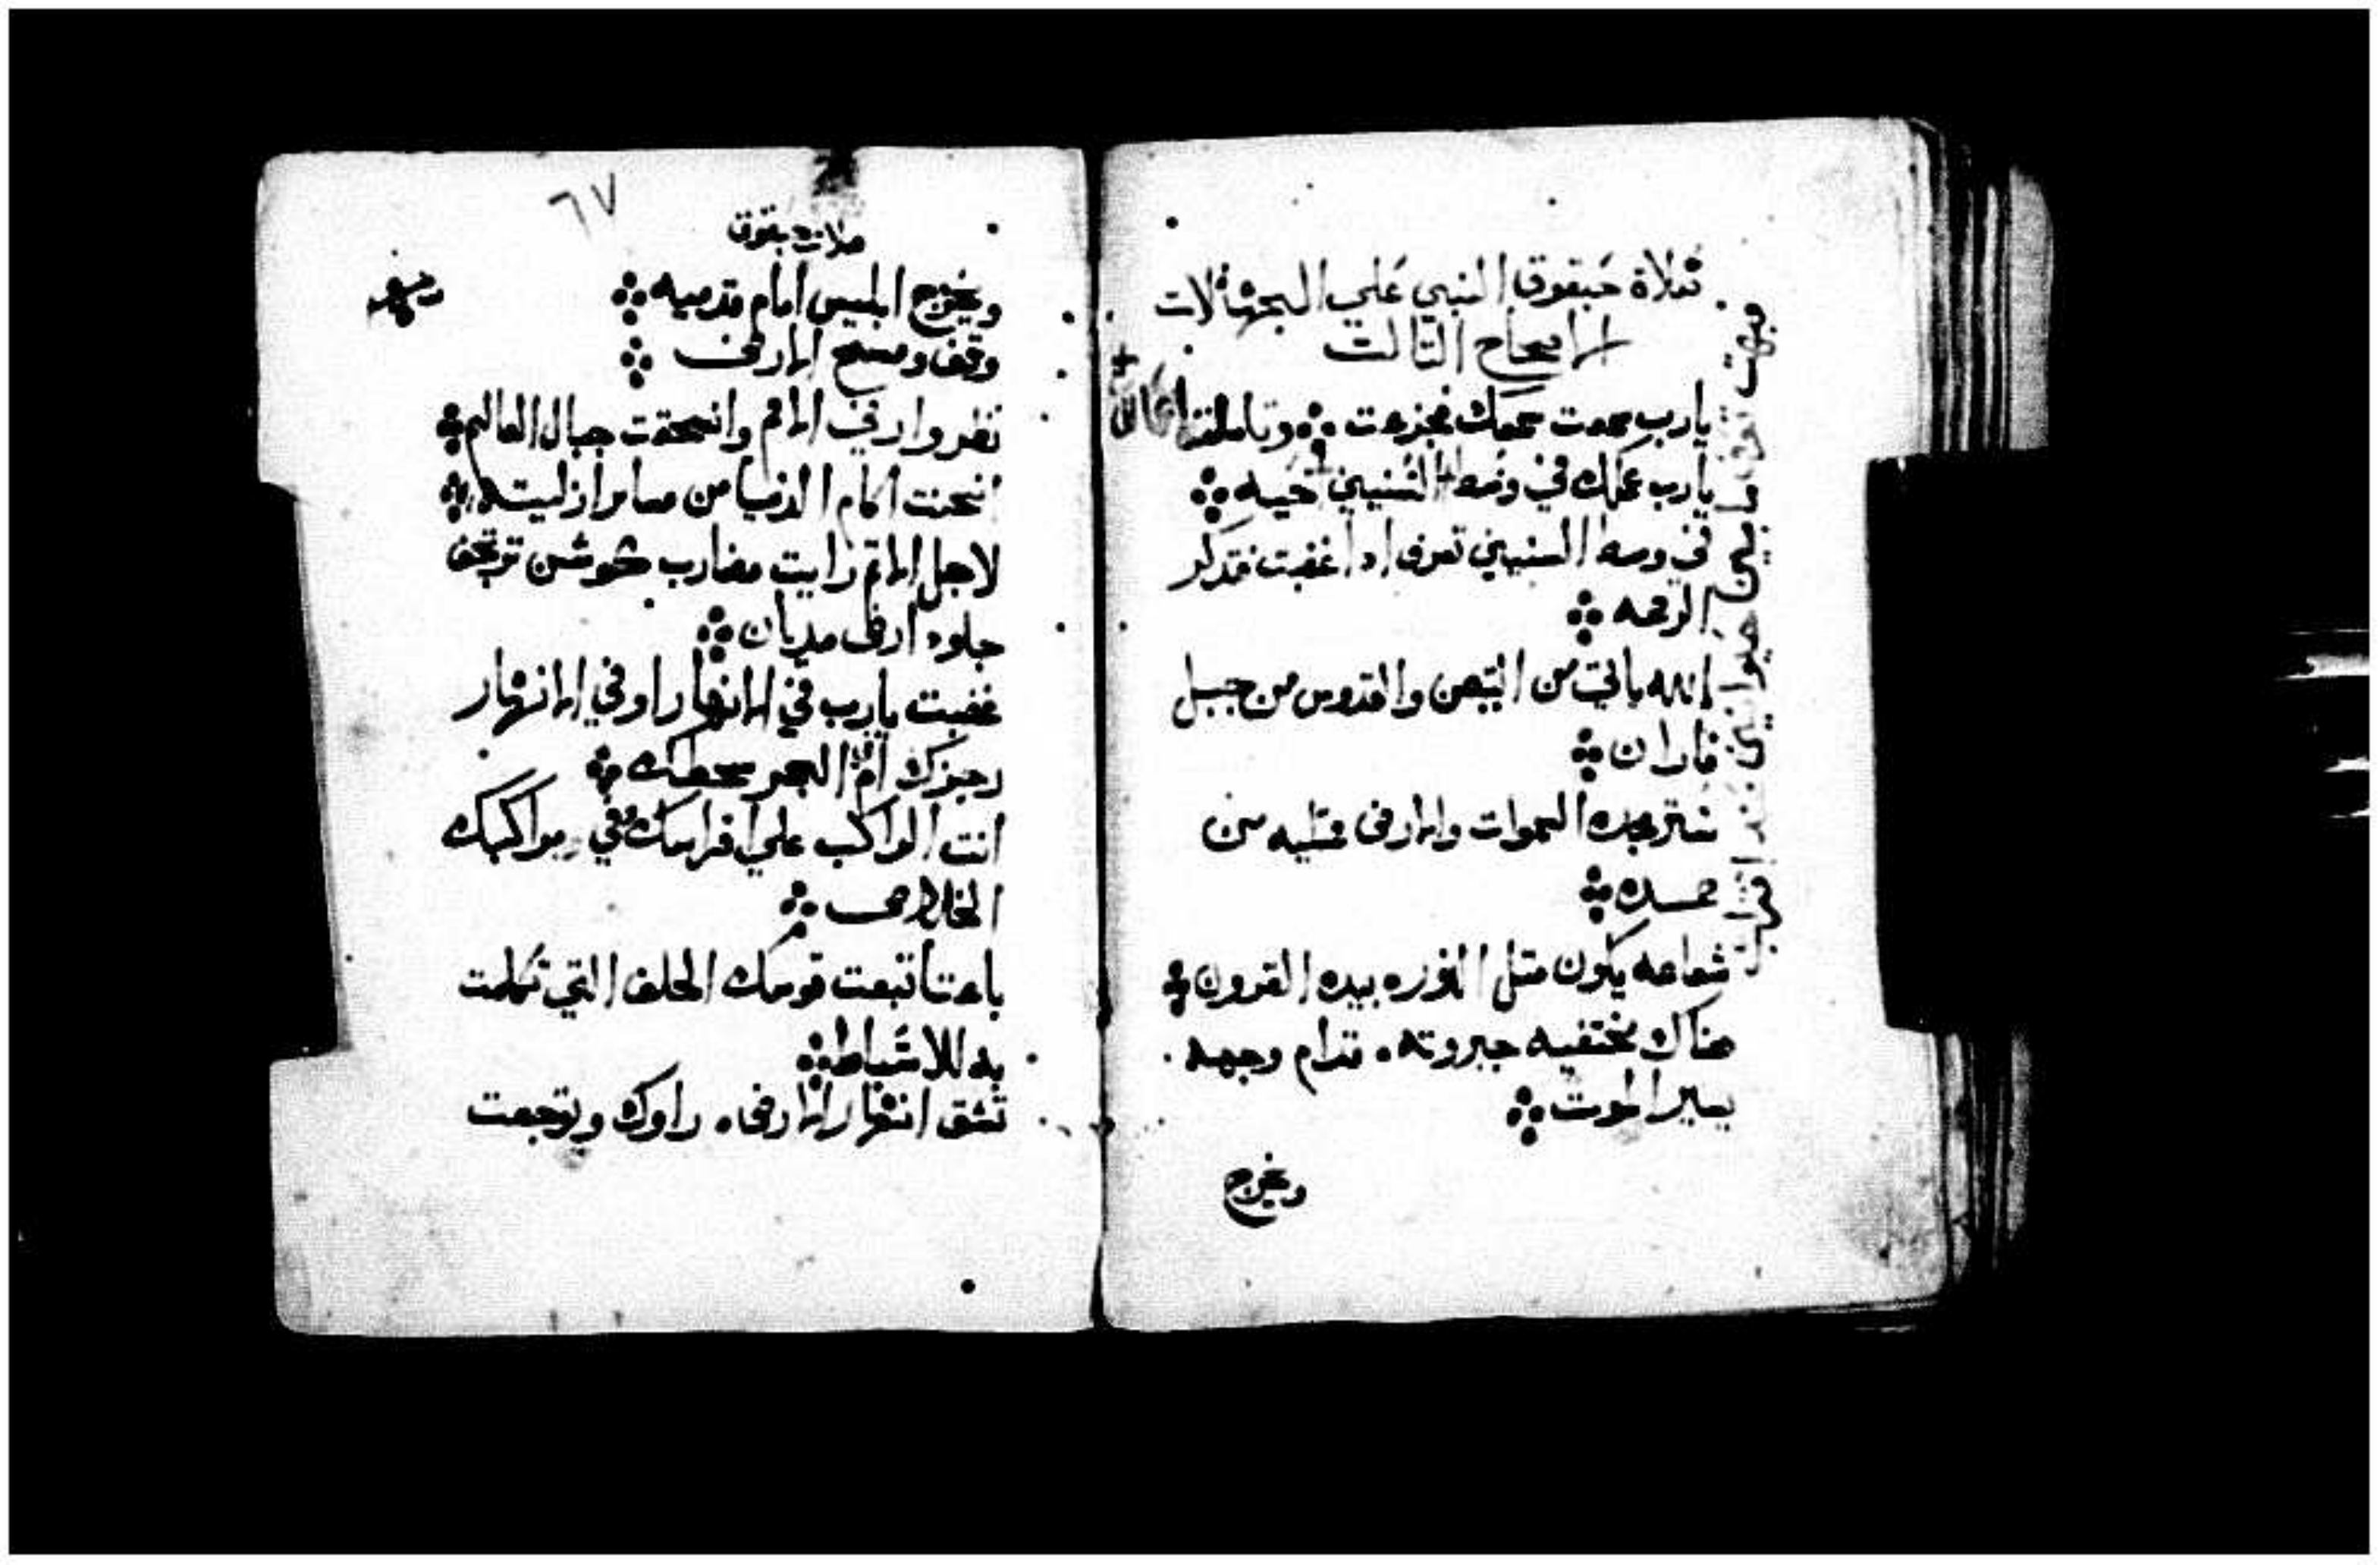 صلاة حبقوق النبي علي الجهالات
الاصحاح التالت
يارب سمعت سمعك فجزعت وتاملت اعمالك
يارب عملك في وسط السنين احييه
في وسط السنين تعرف اذا غضبت فتذكر
الرحمه
الله ياتي من التيمن والقدوس من جبل
فاران
ستر مجده السموات والارض ممتليه من
حمده
شعاعه يكون متل النور بيده القرون
هناك مختفيه جبروته قدام وجهه
يسير الموت
ويخرج
٦٧
صلاة حبقوق
ويخرج ابليس امام قدميه
وقف ومسح الارض
نظر وارخي الامم وانسحقت جبال العالم
انحنت اكام الدنيا من مسابر ازليته
لاجل الاتم رايت مضارب كوشن ترتجف
جلود ارض مديان
غضبت يارب في الانهار او في الانهار
رجزك ام في البحر سخطك
انت الراكب علي افراسك وفي مراكبك
الخلاص
باعتنا تبعت قوسك الحلف التي تكلمت
به للاسباط
تشق انهار الارض راوك وتوجعت